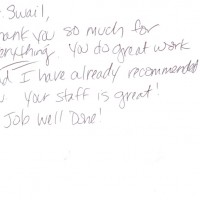 . Swail,
hank you so much for
erything. You do great work
nd I have already recommended
u Your staff is great!
Job Well Done!